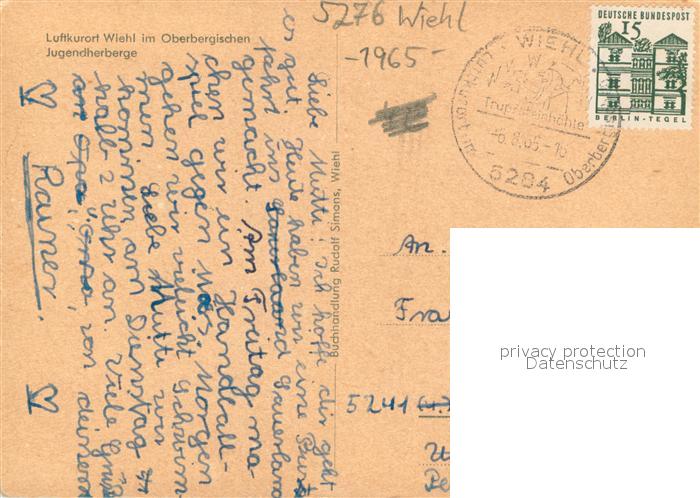 5276 Wiehl
-1965-
Luftkurort Wiehl im Oberbergischen
Jugendherberge
DEUTSCHE BUNDESPOST
15
BERLIN-TEGEL
WIEHL
Tropfsteinhöhle
-6.8.65-16
5284
Liebe Mutti! Ich hoffe dir geht
es gut. Heute haben wir eine Rund
fahrt ins Sauerland
gemacht. Am Freitag ma
chen wir ein Handball-
spiel gegen Morgen
gehen wir vieleicht schwim
men. Liebe Mutti wir
kommen am Dienstag
halb 2 Uhr an. Viele Grüß
an Opa, Oma, von deinem
Rainer.
Buchhandlung Rudolf Simons, Wiehl
An.
5241
privacy protection
Datenschutz